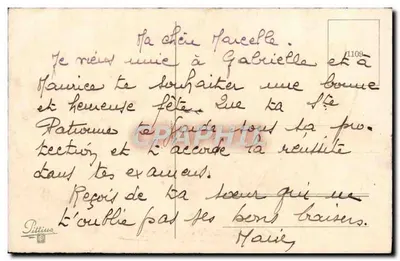 Ma chère Marcelle.
1109
Je viens unie à Gabrielle et à
Maurice te souhaiter une bonne
et heureuse fête. Que ta Ste
Patronne te garde sous sa pro-
tection et t'accorde la réussite
dans tes examens.
Reçois de ta soeur qui ne
t'oublie pas ses bons baisers.
Marie